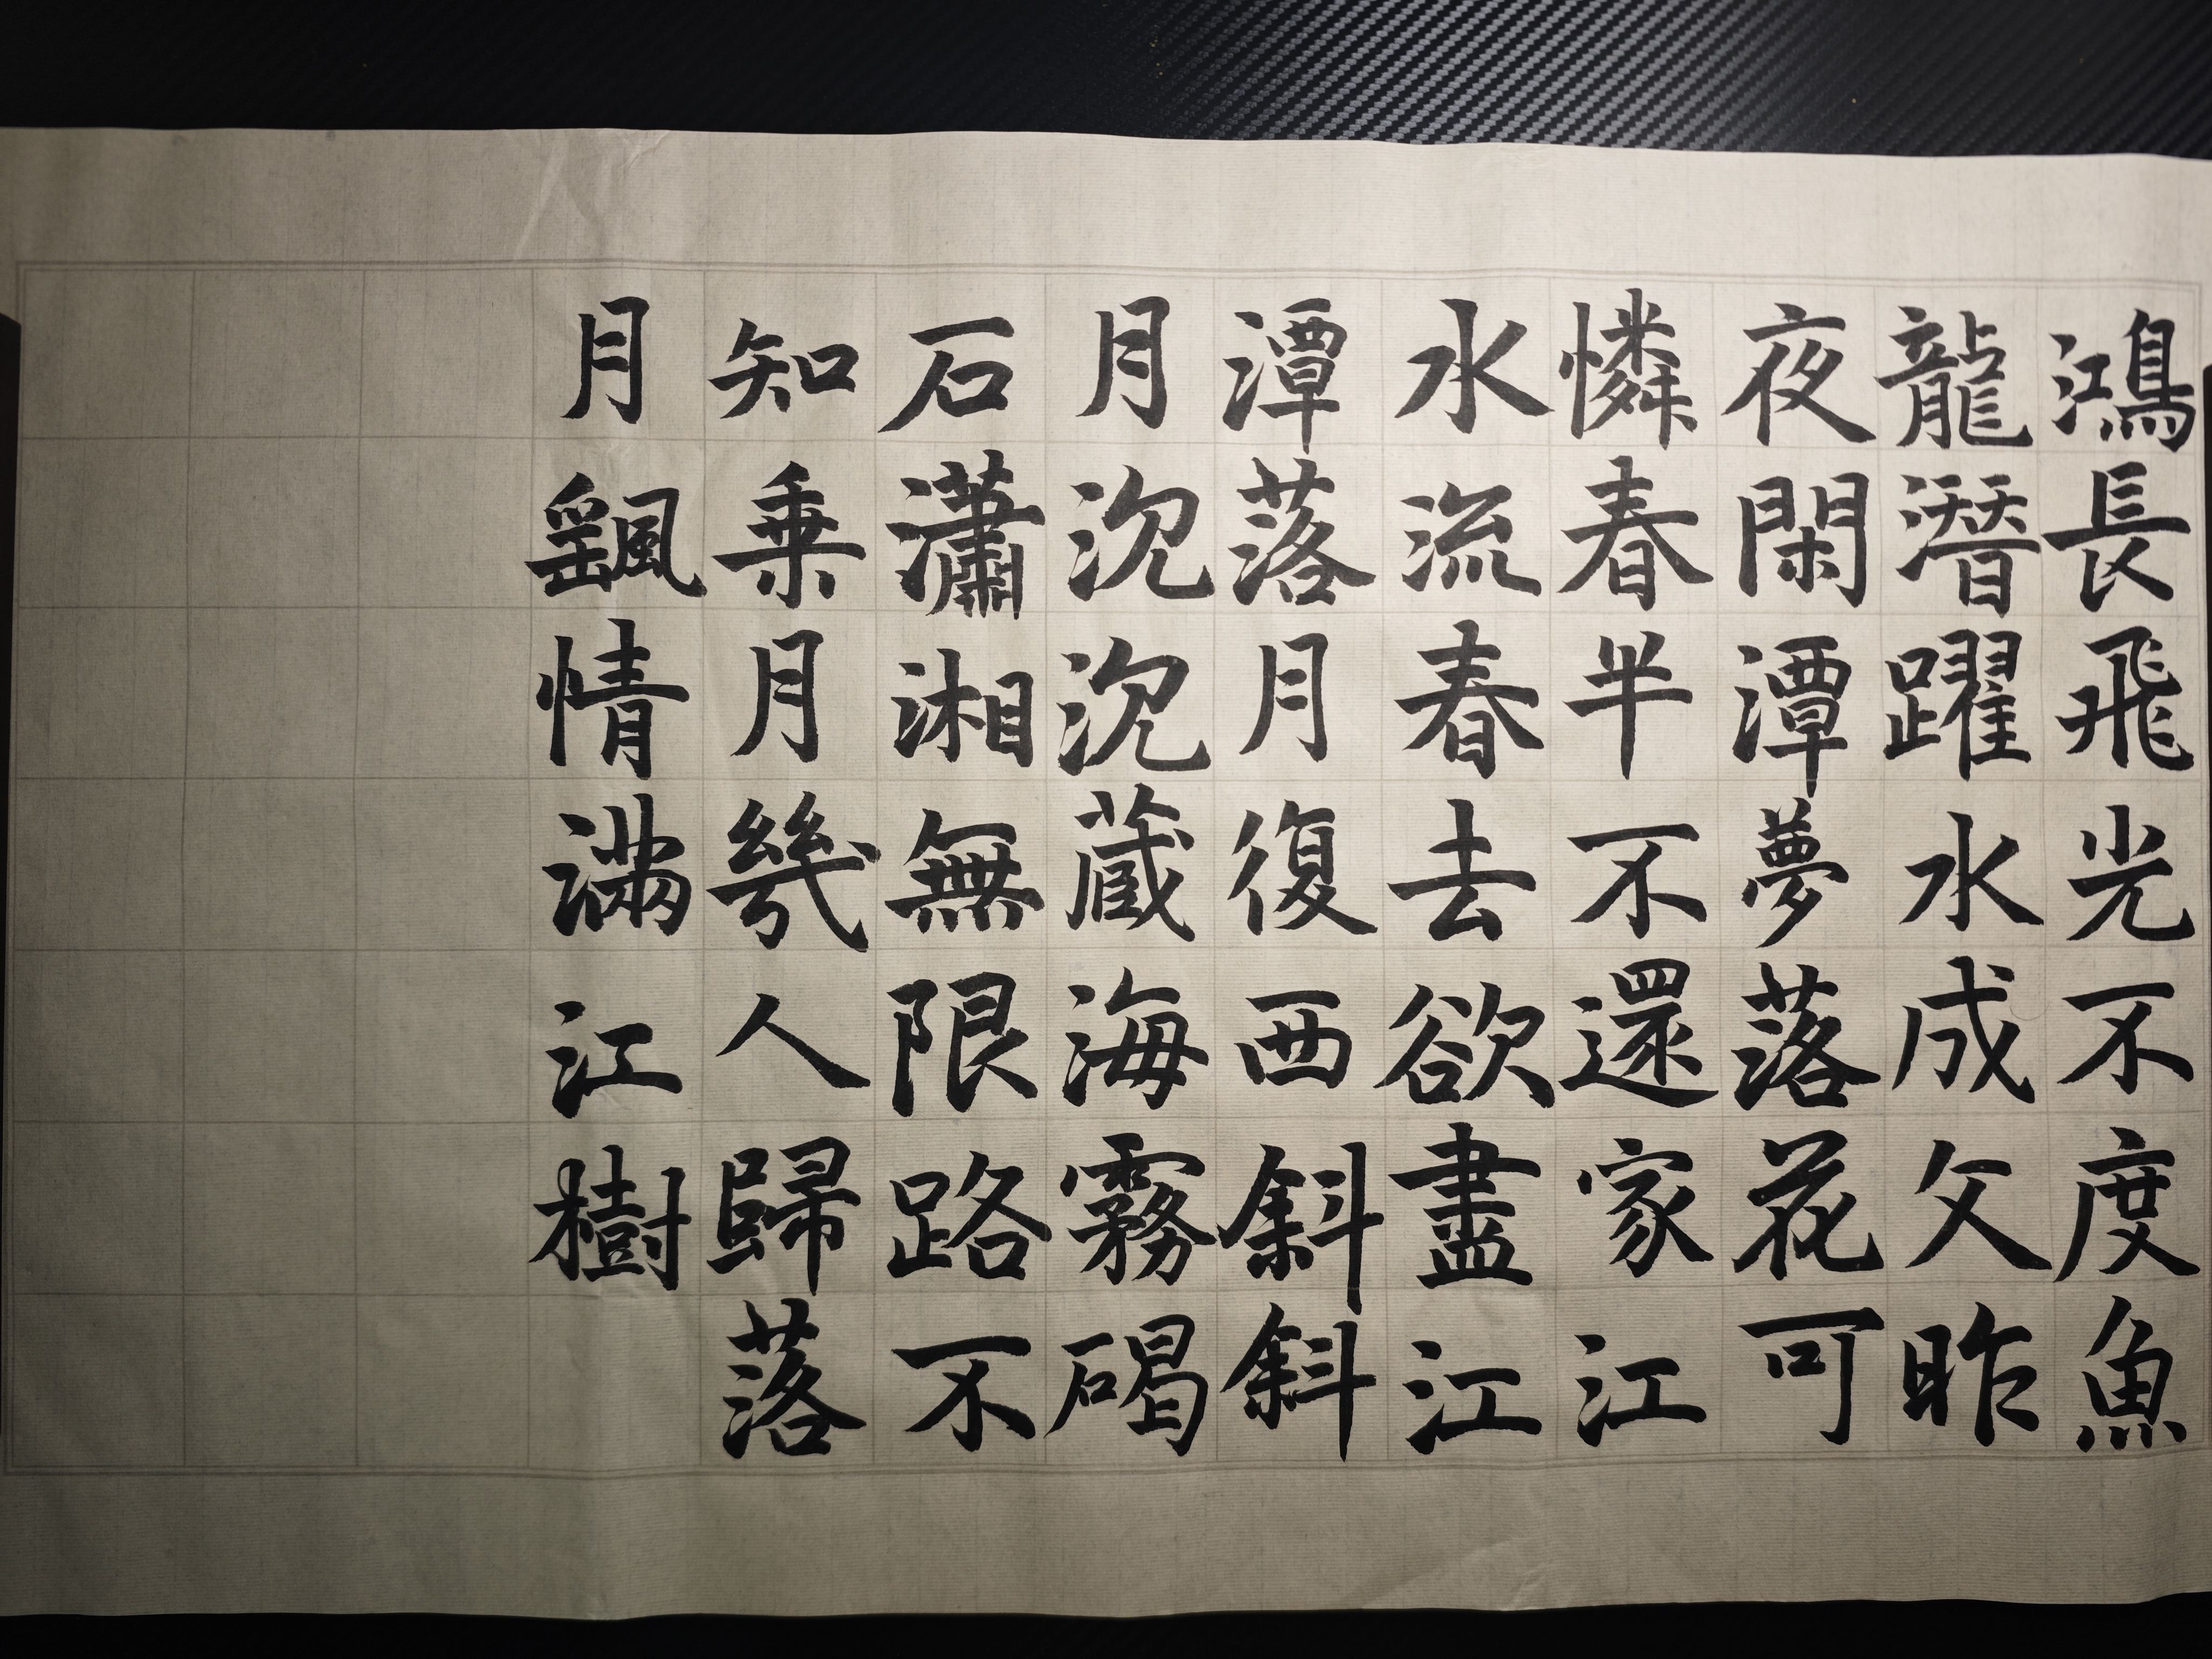 鴻長飛光不度魚
龍潛躍水成文昨
夜閑潭夢落花可
憐春半不還家江
水流春去欲盡江
潭落月復西斜斜
月沉沉藏海霧碣
石瀟湘無限路不
知乗月幾人歸落
月颻情滿江樹